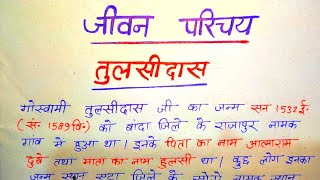 जीवन परिचय
तुलसीदास
गोस्वामी तुलसीदास जी का जन्म सन 1532 ई॰
(सं॰ 1589 वि॰) को बांदा जिले के राजापुर नामक
गांव मे हुआ था। इनके पिता का नाम आत्माराम
दुबे तथा माता का नाम हुलसी था। कुछ लोग इनका
जन्म स्थान एटा जिले के सोरो नामक स्थान